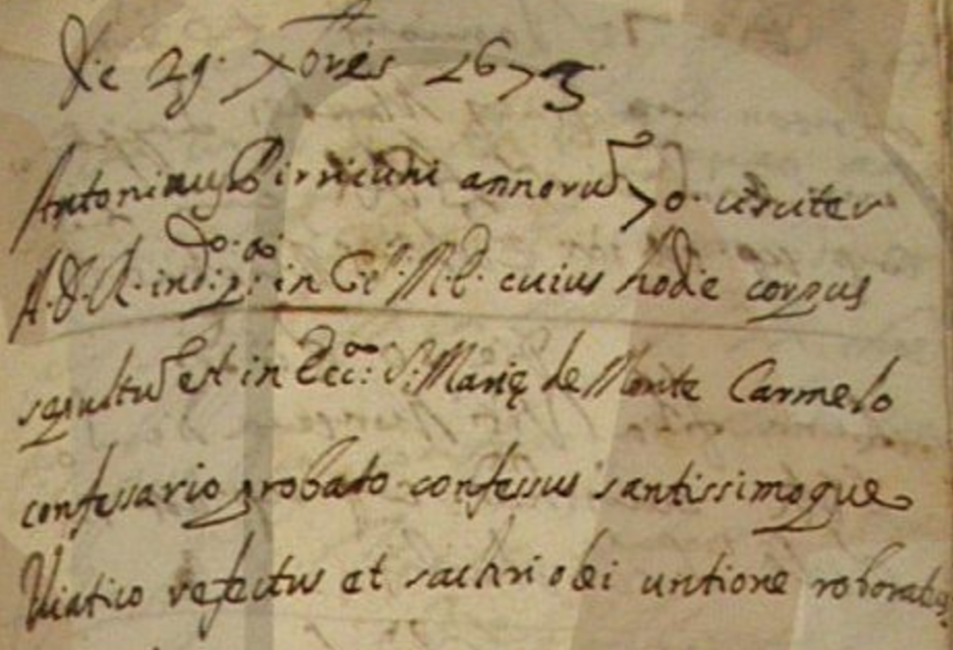 Die 29. Xbris 1675
Antoninus Pirricuni annorũ 70. utriter
A. D. R. in Cõi S. M. E. cuius hodie corpus
sepultũ est in Ecc.ᵃ S. Marię de Monte Carmelo
confessario probato confessus santissimoque
Viatico refectus et sachri olei untione roboratus